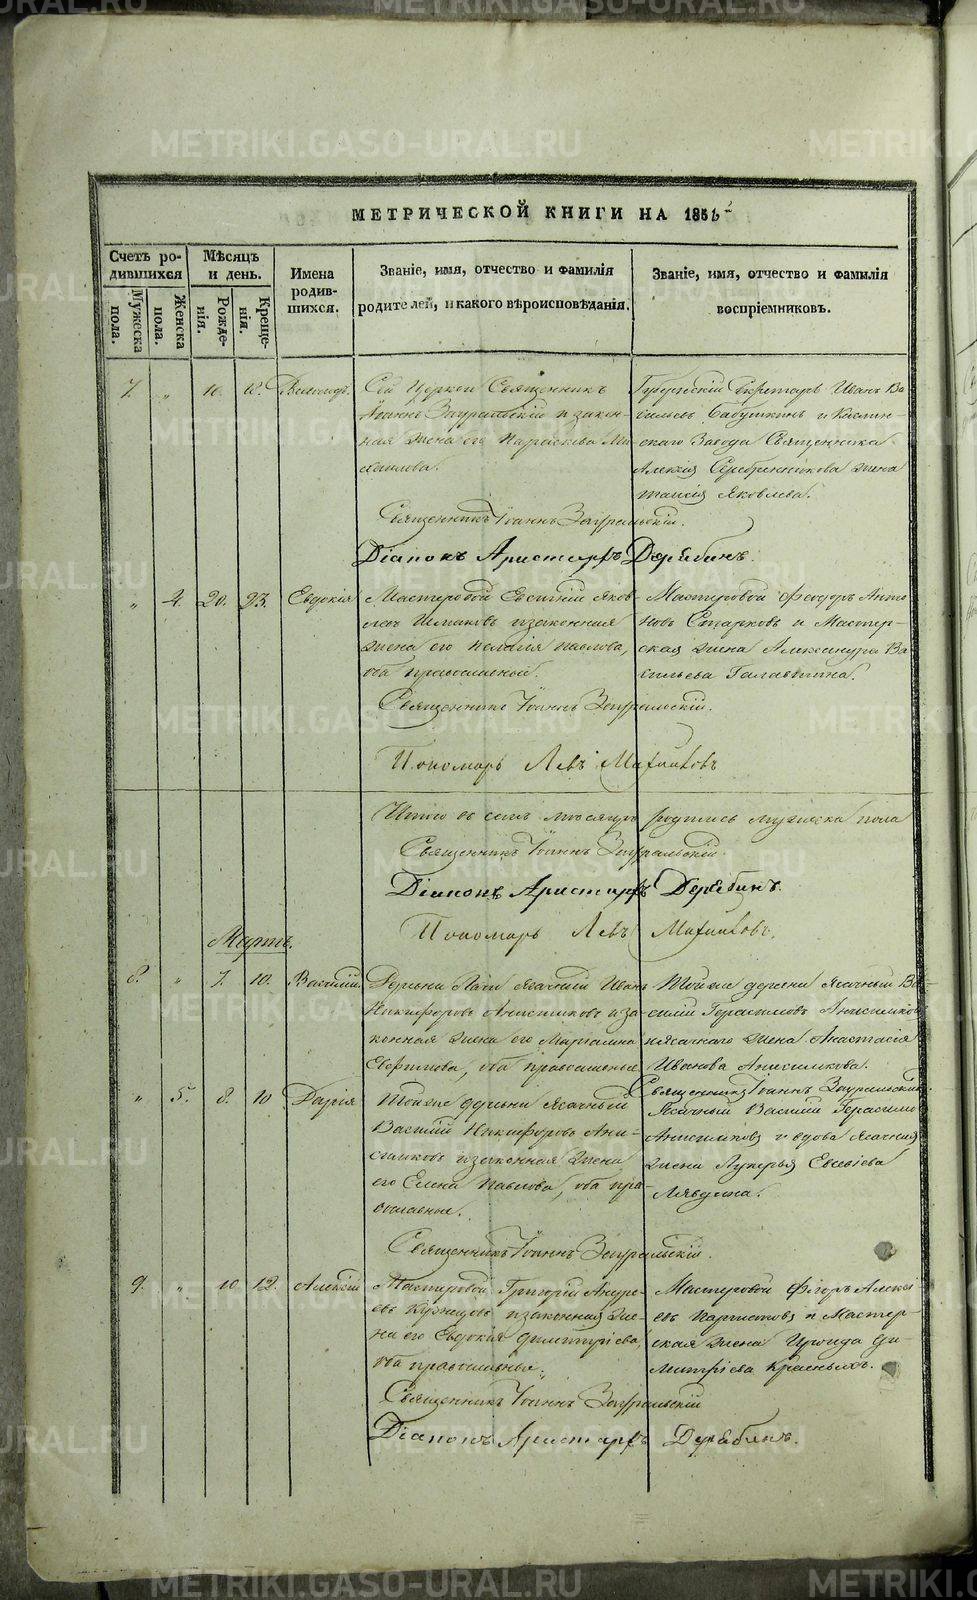 METRIKI.GASO-URAL.RU
МЕТРИЧЕСКОЙ КНИГИ НА 185
Счетъ ро-
дившихся
Мѣсяцъ
и день.
Имена
родив-
шихся.
Званіе, имя, отчество и фамилія
родителей, и какого вѣроисповѣданія.
Званіе, имя, отчество и фамилія
воспріемниковъ.
Мужеска
пола.
Женска
пола.
Рожде-
нія.
Креще-
нія.
7. " Сей Церкви Священникъ
Іоаннъ Зауральскій и закон-
ная жена его Параскева Ми-
хаилова.
Губернскій Секретарь Иванъ Ва-
сильевъ Бабушкинъ и Каслин-
скаго Завода Священника
Алексія Серебренникова жена
Таисія Яковлева.
Священникъ Іоаннъ Зауральскій.
Діаконъ Аристархъ Дерябинъ.
" 4. 20. 23. Евдокія
Мастеровой Евсигній Яков-
левъ и законная
жена его Пелагія Павлова,
оба православной.
Мастеровой Феодоръ Анто-
новъ и Мастер-
ская жена Александра Ва-
сильева
Священникъ Іоаннъ Зауральскій.
Пономарь Левъ
Итого въ семъ мѣсяцѣ родились мужеска пола
Священникъ Іоаннъ Зауральскій.
Діаконъ Аристархъ Дерябинъ.
Пономарь Левъ
Мартъ.
8. " 7. 10. Василій.
Деревни Ясачный Иванъ
Никифоровъ Анисимковъ и за-
конная жена его Маріамна
оба православные
Той же деревни Ясачный Ва-
силій Герасимовъ Анисимковъ
и ясачнаго жена Анастасія
Иванова Анисимкова.
Священникъ Іоаннъ Зауральскій.
" 5. 8. 10 Дарія
Той же деревни Ясачный
Василій Никифоровъ Ани-
симковъ и законная жена
его Елена Павлова, оба пра-
вославные.
Ясачный Василій Герасимовъ
Анисимковъ и вдова Ясачная
жена Лукерья Евсевіева
Священникъ Іоаннъ Зауральскій.
9. " 10. 12. Алексій
Мастеровой Григорій Андре-
евъ Кузнецовъ и законная же-
на его Евдокія Димитріева,
оба православные.
Мастеровой Алексѣ-
евъ и Мастер-
ская жена Ироида Ди-
митріева Красныхъ.
Священникъ Іоаннъ Зауральскій
Діаконъ Аристархъ Дерябинъ.